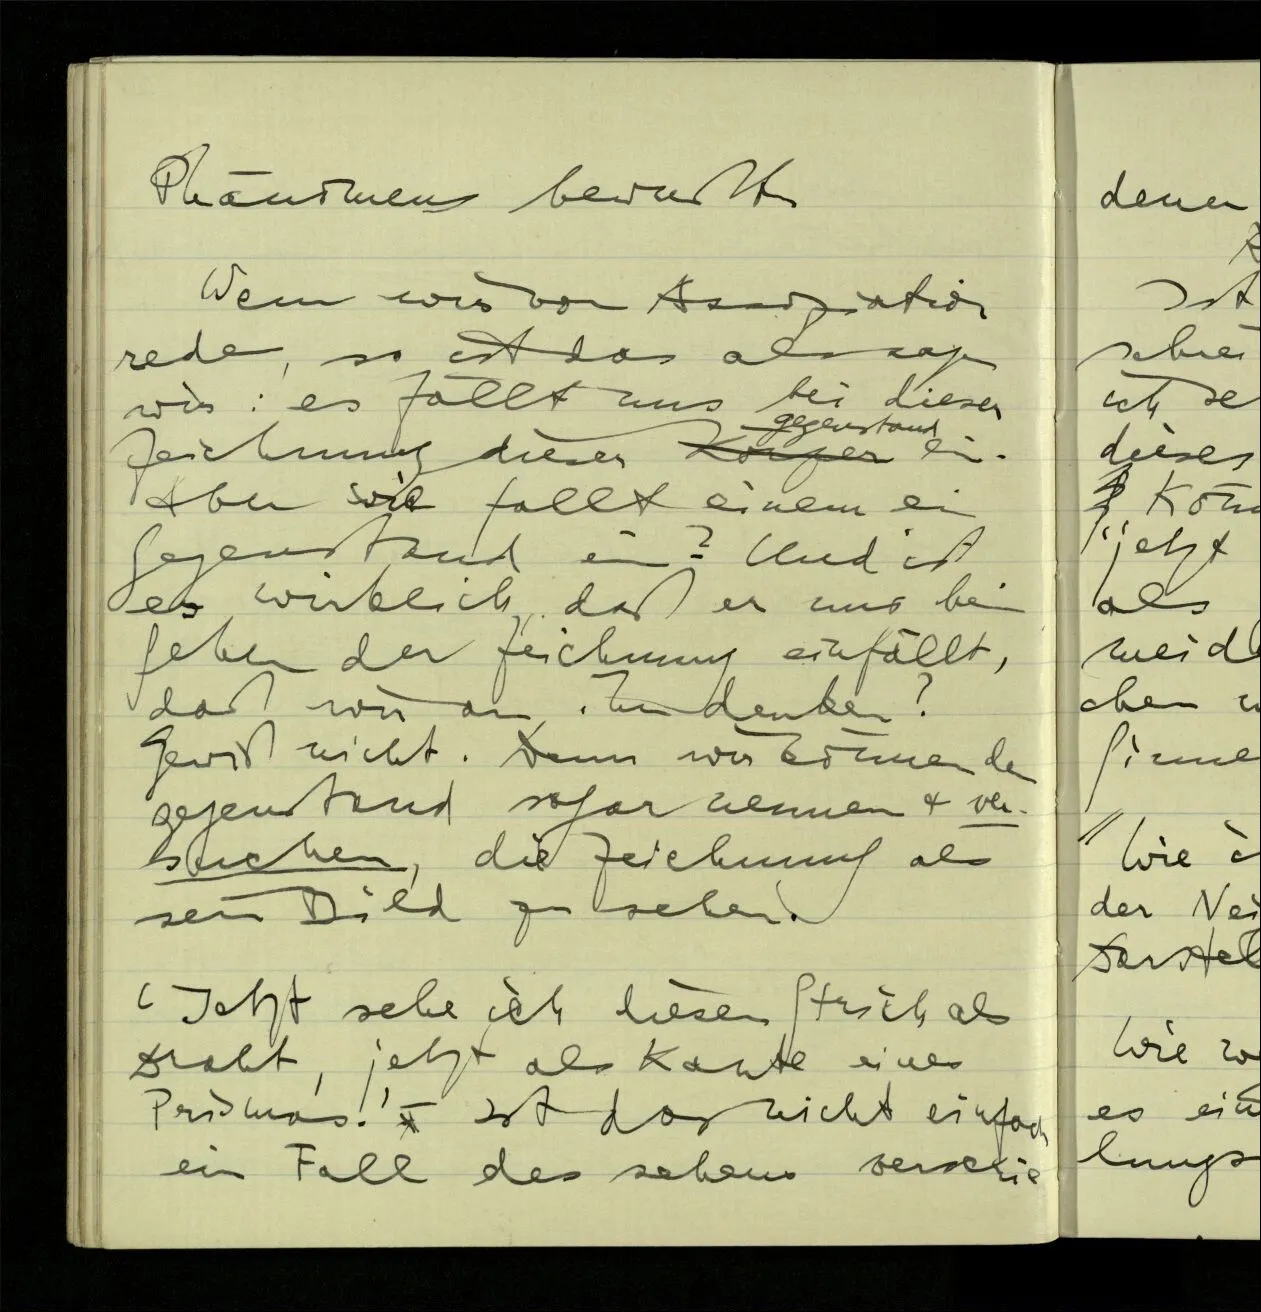 Phänomens bewußt
Wenn wir von Assoziation
reden, so ist das als sagen
wir: es fällt uns bei dieser
gegenstand
Zeichnung dieser Körper ein.
Aber wie fällt einem ein
Gegenstand ein? Und ist
es wirklich, daß er uns beim
Sehen der Zeichnung einfällt,
daß wir an ihn denken?
Gewiß nicht. Denn wir können den
gegenstand sogar nennen & ver-
suchen, die Zeichnung als
sein Bild zu sehen.
"Jetzt sehe ich diesen Strich als
Draht, jetzt als Kante eines
Prismas!" Ist das nicht einfach
ein Fall des sehens verschie
denen
Ist
ich se
dieses
Könn
"jetzt
als
chen
Wie
der Nei
Darstel
Wie
es ein
lungs